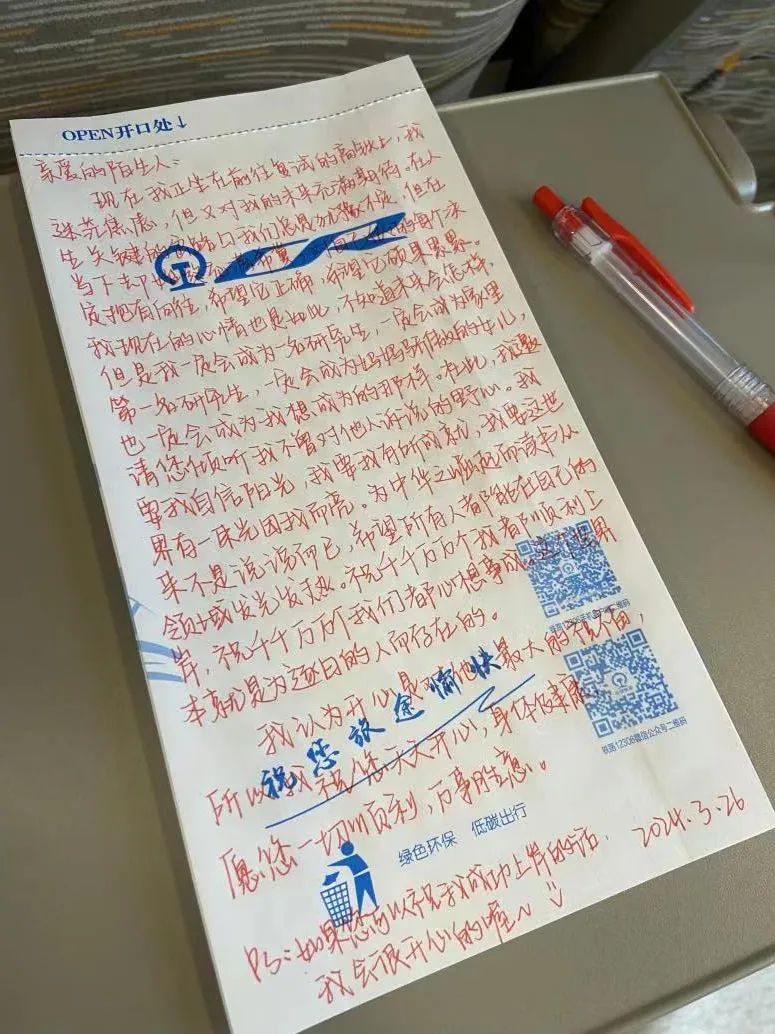 OPEN开口处↓
亲爱的陌生人:
现在我正坐在前往复试的高铁上,我
迷茫焦虑,但又对我的未来充满期待。在人
生关键的岔路口我们总是犹豫不决,但在
当下去
质抱有向往,希望它正确,希望它硕果累累。
我现在的心情也是如此,不知道未来会怎样,
但是我一定会成为一名研究生,一定会成为家里
第一名研究生,一定会成为妈妈骄傲的女儿,
也一定会成为我想成为的那样。在此,我邀
请您倾听我不曾对他人诉说的野心。我
要我自信阳光,我要我有所成就,我要这世
界有一束光因我而亮。为中华之崛起而读书从
来不是说说而已,希望所有人都能在自己的
领域发光发热。祝千千万万个我都顺利上
岸,祝千千万万个我们都心想事成。这个世界
本就是为逐日的人而存在的。
我认为开心是对他人最大的祝福,
祝您旅途愉快
所以我祝您天天开心,身体健康,
愿您一切顺利,万事胜意。
铁路12306微信公众号二维码
绿色环保 低碳出行
2024.3.26
PS:如果您可以祝我成功上岸的话,
我会很开心的喔~